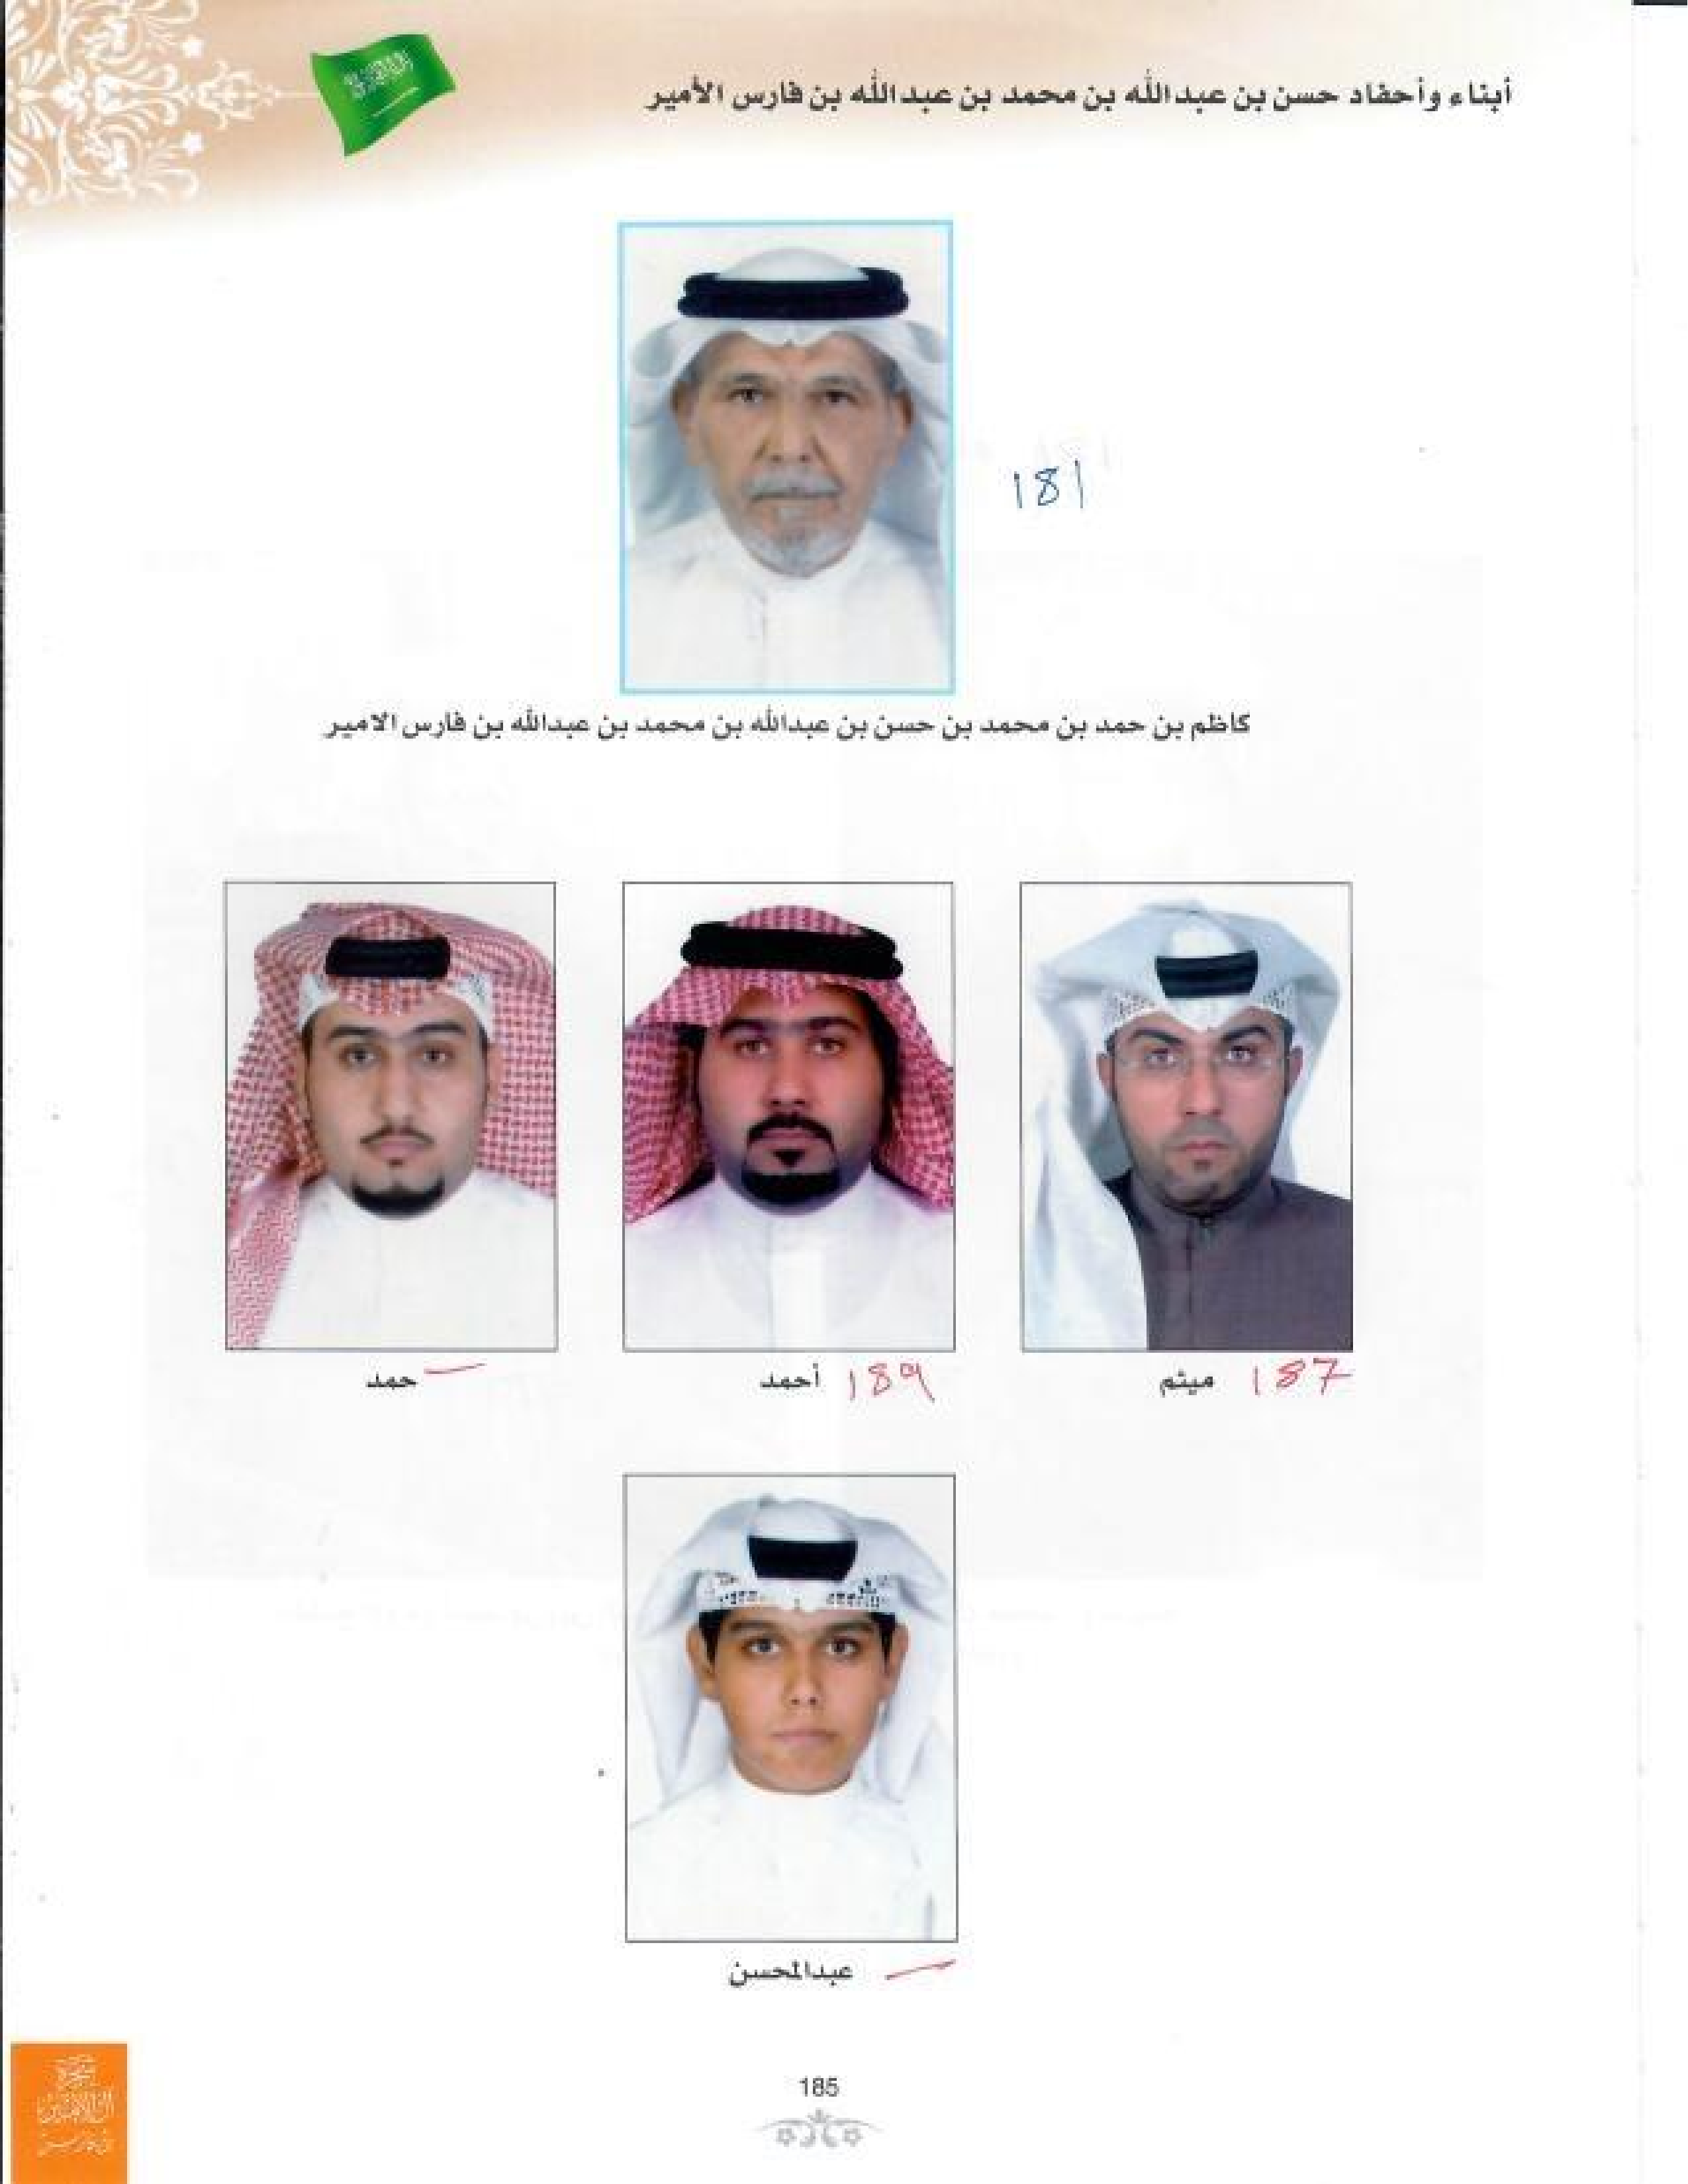 أبناء وأحفاد حسن بن عبدالله بن محمد بن عبدالله بن فارس الأمير
181
كاظم بن حمد بن محمد بن حسن بن عبدالله بن محمد بن عبدالله بن فارس الامير
ميثم 187
أحمد 189
حمد
عبدالمحسن
185
شجرة